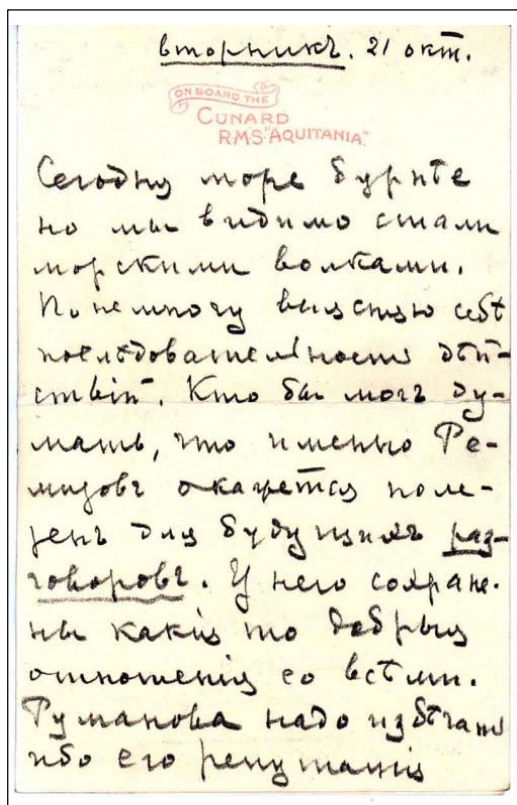 вторникъ. 21 окт.
ON BOARD THE
CUNARD
R.M.S. "AQUITANIA."
Сегодня море бурнѣе
но мы видимо стали
морскими волками.
Понемногу выясняю себѣ
послѣдовательность дѣй-
ствій. Кто бы могъ ду-
мать, что именно Ре-
мизовъ окажется поле-
зенъ для будущихъ раз-
говоровъ. У него сохране-
ны какія то добрыя
отношенія со всѣми.
Руманова надо избѣгать
ибо его репутація